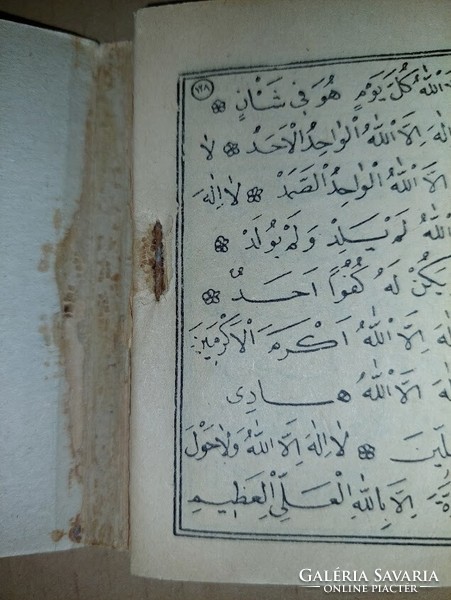 ١٢٨
اللهُ كُلَّ يَوْمٍ هُوَ فِى شَأْنٍ
اِلَّا اللهُ الْوَاحِدُ الْاَحَدُ لَا
اِلَّا اللهُ الْوَاحِدُ الصَّمَدُ لَا اِلٰهَ
اللهُ لَمْ يَلِدْ وَلَمْ يُولَدْ
يَكُنْ لَهُ كُفُوًا اَحَدٌ
اِلَّا اللهُ اَكْرَمَ الْاَكْرَمِينَ
اِلَّا اللهُ هَادِى
لَا اِلٰهَ اِلَّا اللهُ وَلَاحَوْلَ
اِلَّا بِاللهِ الْعَلِىِّ الْعَظِيمِ
GALÉRIA SAVARIA
ONLINE PIACTÉR